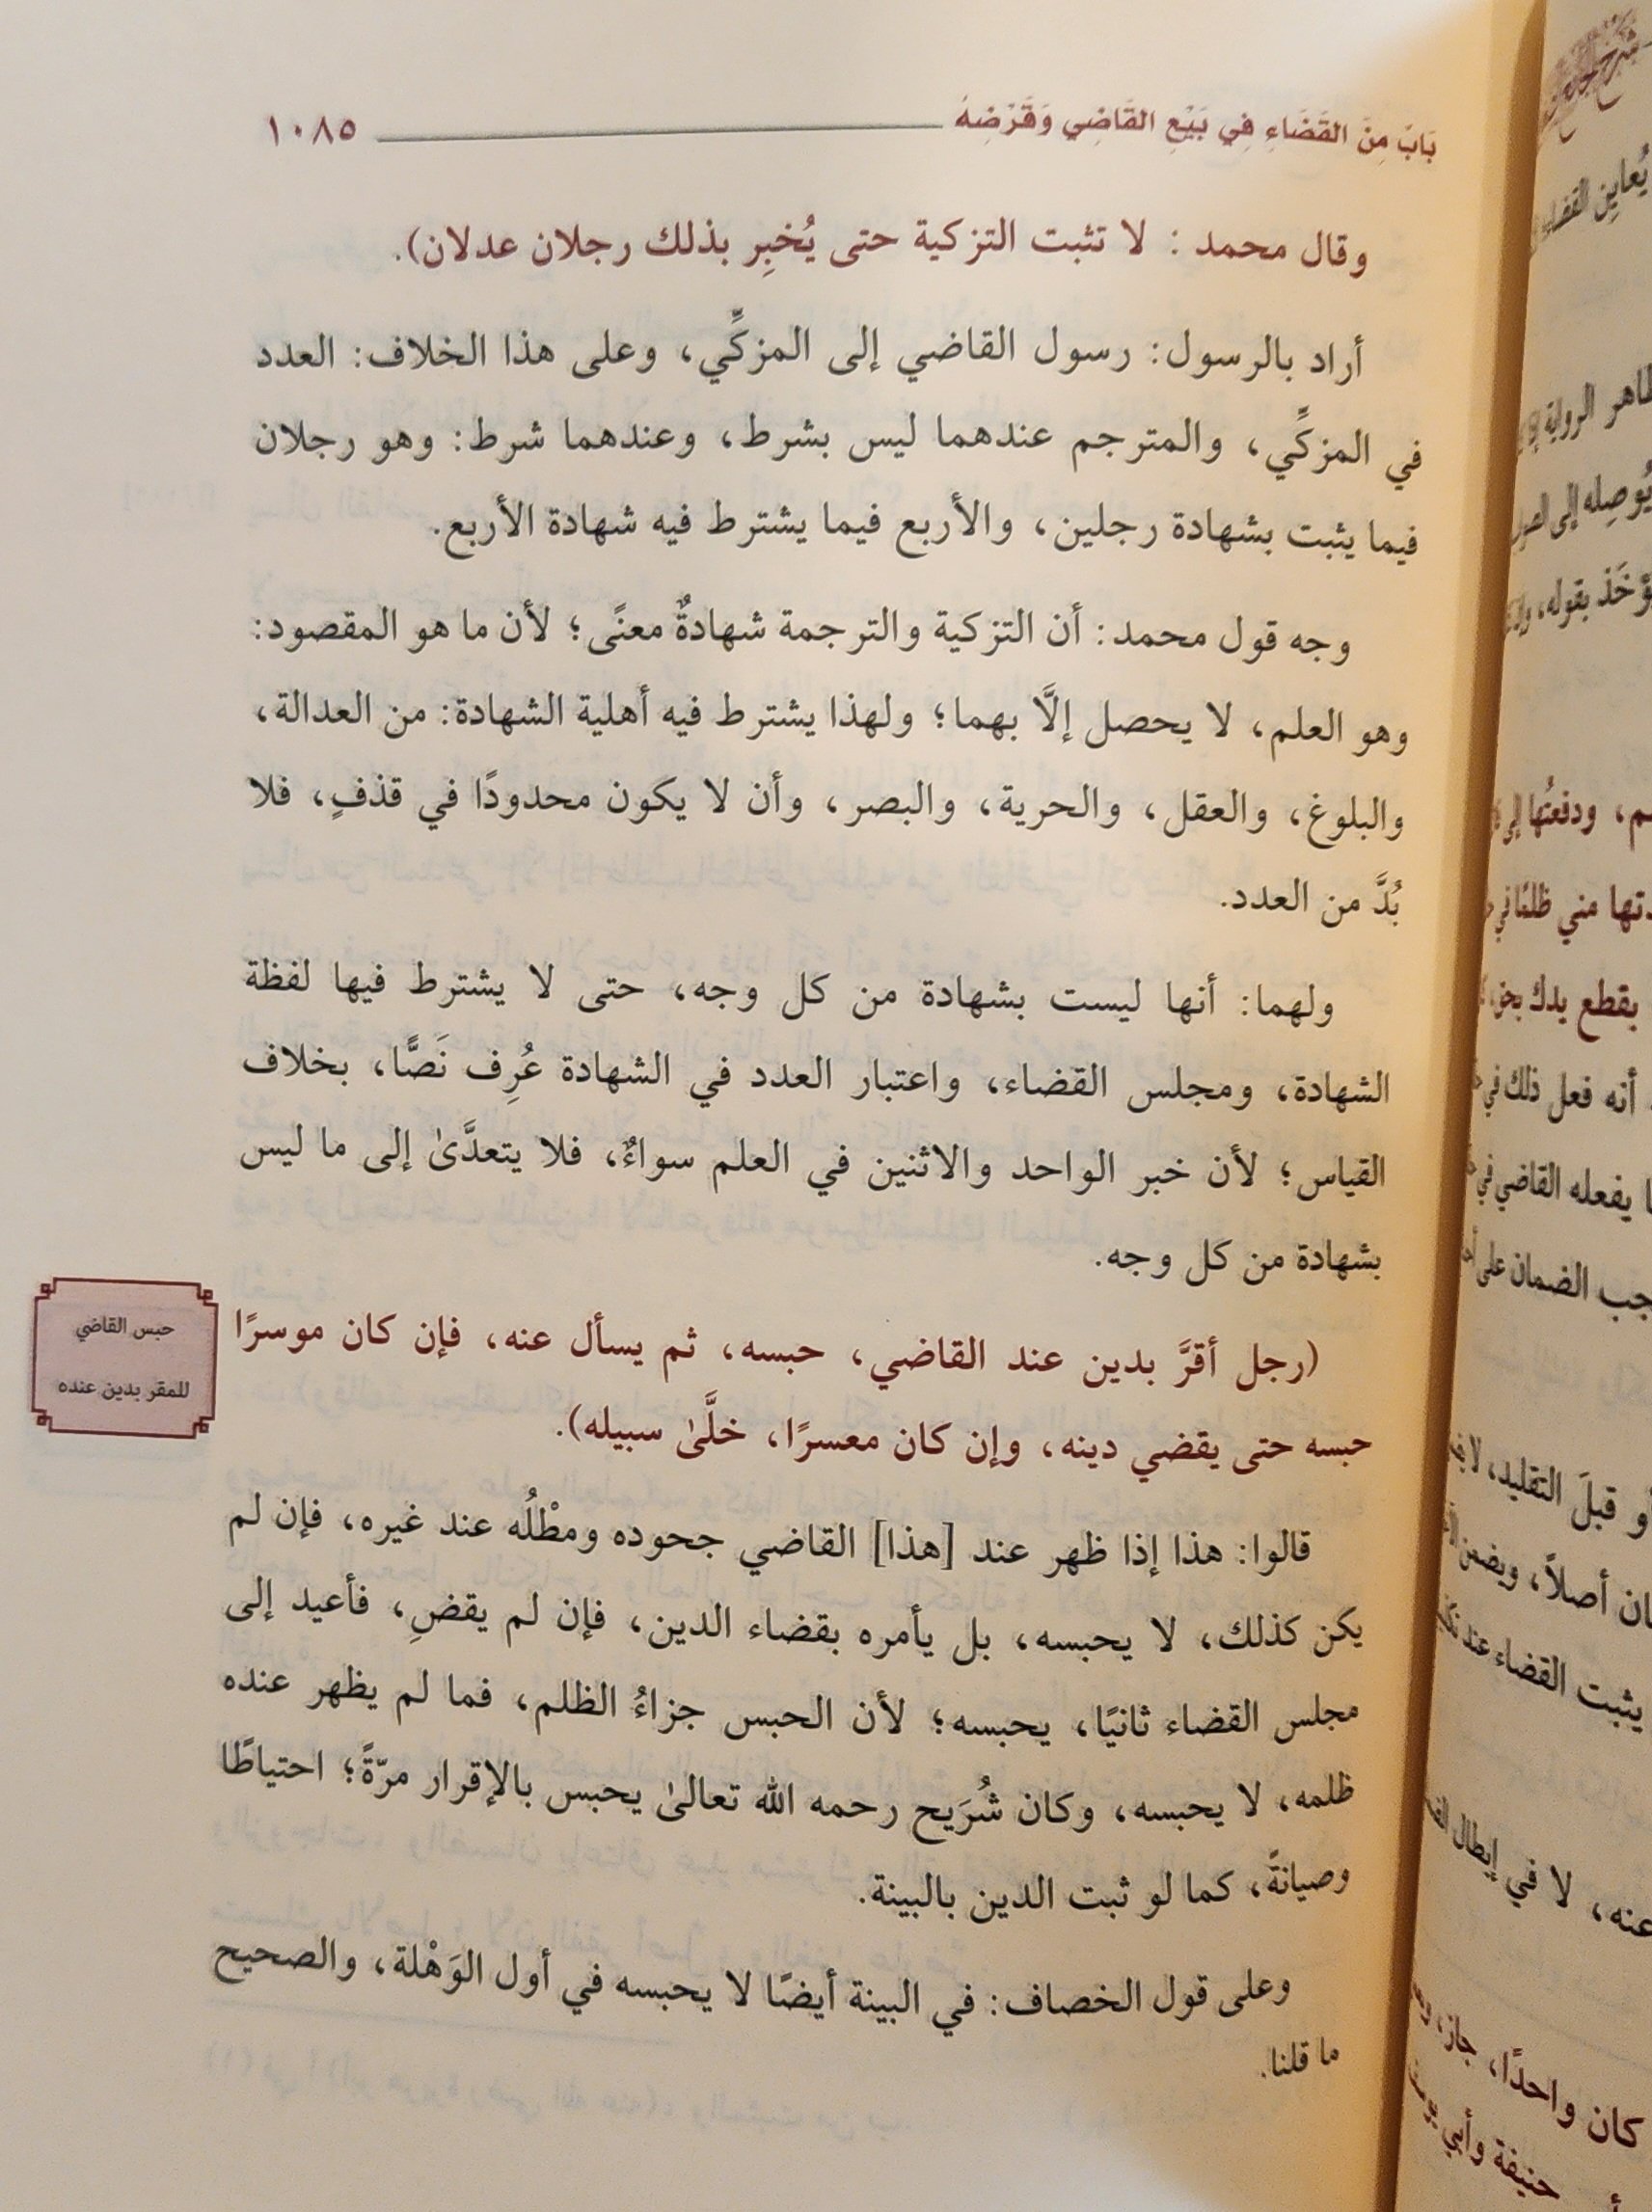 بَابٌ مِنَ القَضَاءِ فِي بَيْعِ القَاضِي وَقَرْضِهِ ١٠٨٥
وقال محمد : لا تثبت التزكية حتى يُخبِر بذلك رجلان عدلان).
أراد بالرسول: رسول القاضي إلى المزكِّي، وعلى هذا الخلاف: العدد
في المزكِّي، والمترجم عندهما ليس بشرط، وعندهما شرط: وهو رجلان
فيما يثبت بشهادة رجلين، والأربع فيما يشترط فيه شهادة الأربع.
وجه قول محمد: أن التزكية والترجمة شهادةٌ معنًى؛ لأن ما هو المقصود:
وهو العلم، لا يحصل إلَّا بهما؛ ولهذا يشترط فيه أهلية الشهادة: من العدالة،
والبلوغ، والعقل، والحرية، والبصر، وأن لا يكون محدودًا في قذفٍ، فلا
بُدَّ من العدد.
ولهما: أنها ليست بشهادة من كل وجه، حتى لا يشترط فيها لفظة
الشهادة، ومجلس القضاء، واعتبار العدد في الشهادة عُرِف نَصًّا، بخلاف
القياس؛ لأن خبر الواحد والاثنين في العلم سواءٌ، فلا يتعدَّىٰ إلى ما ليس
بشهادة من كل وجه.
حبس القاضي
للمقر بدين عنده
(رجل أقرَّ بدين عند القاضي، حبسه، ثم يسأل عنه، فإن كان موسرًا
حبسه حتى يقضي دينه، وإن كان معسرًا، خلَّىٰ سبيله).
قالوا: هذا إذا ظهر عند [هذا] القاضي جحوده ومطْلُه عند غيره، فإن لم
يكن كذلك، لا يحبسه، بل يأمره بقضاء الدين، فإن لم يقضِ، فأعيد إلى
مجلس القضاء ثانيًا، يحبسه؛ لأن الحبس جزاءُ الظلم، فما لم يظهر عنده
ظلمه، لا يحبسه، وكان شُرَيح رحمه الله تعالىٰ يحبس بالإقرار مرّةً؛ احتياطًا
وصيانةً، كما لو ثبت الدين بالبينة.
وعلى قول الخصاف: في البينة أيضًا لا يحبسه في أول الوَهْلة، والصحيح
ما قلنا.
يُعاين القضاء
ظاهر الرواية
يُوصِله إلى
ؤخَذ بقوله،
ودفعتُها إلى
مني ظلمًا في
بقطع يدك بحق
أنه فعل ذلك في
يفعله القاضي في
الضمان على
أو قبلَ التقليد، لا
أصلاً، ويضمن
يثبت القضاء عند
عنه، لا في إبطال
كان واحدًا، جاز،
حنيفة وأبي